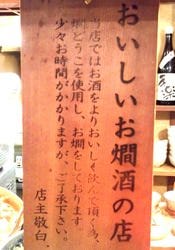 おいしいお燗酒の店
当店ではお酒をよりおいしく飲んで頂く為、
燗どうこを使用し、お燗をしております。
少々お時間がかかりますが、ご了承下さい。
店主敬白、